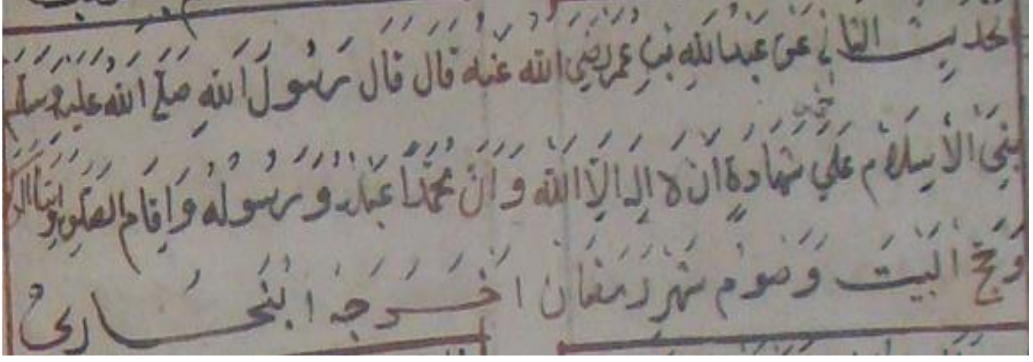 الحديث الثاني عَنْ عَبْدُ اللهِ بنِ عُمَر رَضِيَ الله عَنْهُ قَالَ قَالَ رَسُولُ اللهِ صَلَّى اللهُ عَلَيْهِ وَسَلَّمَ
بُنِيَ الْأِسْلَامُ عَلَى خمس شَهَادَةِ اَنْ لَا اِلَهَ اِلَّا اللهُ وَ اَنَّ مُحَمَّدًا عَبْدُهُ وَ رَسُولُهُ وَ اِقَامِ الصَّلوةِ وَاِيتَاءِ الزكوة
وَحَجِّ الْبَيْتِ وَصَوْمِ شَهْرِ رَمَضَانَ اَخْرَجَهُ الْبُخَارِيُّ